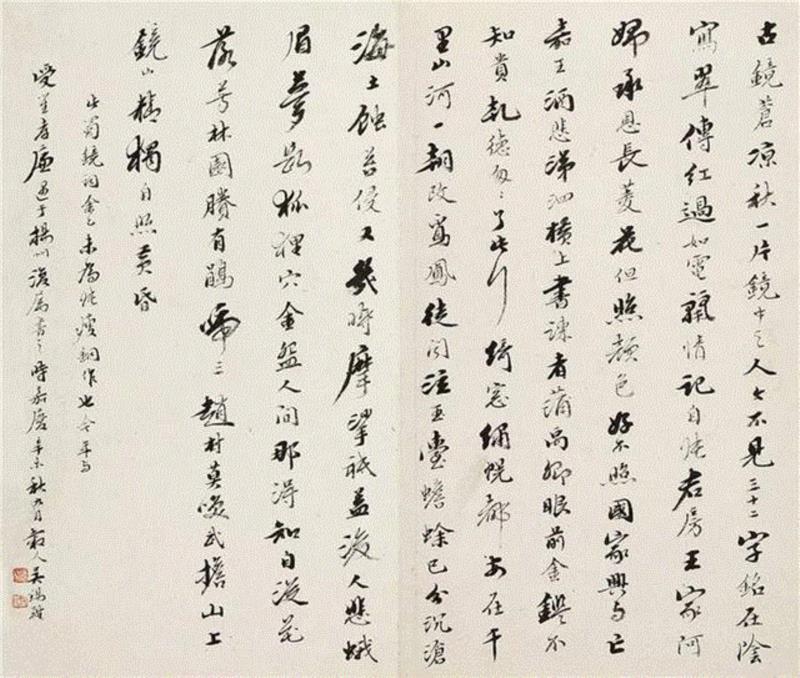 古鏡蒼涼秋一片鏡中之人去不見三十二字銘在陰
寫翠傳紅過如電閑情記自張君房王家阿
婦承恩長菱花但照顏色好不照國家興与亡
嘉王酒悲涕泗橫上書諫者蒲禹卿眼前金鑑不
知貴乾德匆匆了此行綺窓繡幌都安在千
里山河一朝改鸞鳳徒聞注玉臺蟾蜍已分沉滄
海土蝕苔侵又幾時摩挲祇益後人悲蛾
眉夢斷狐狸穴金盌人間那得知自從花
蕊芳林園賸有鵑啼三趙村莫唤武擔山上
鏡山精獨自照黃昏
此蜀鏡詞余之未為張瘦銅作也今年与
受笙孝廉遇于揚州復屬書之時嘉慶辛未秋九月穀人吳錫麒